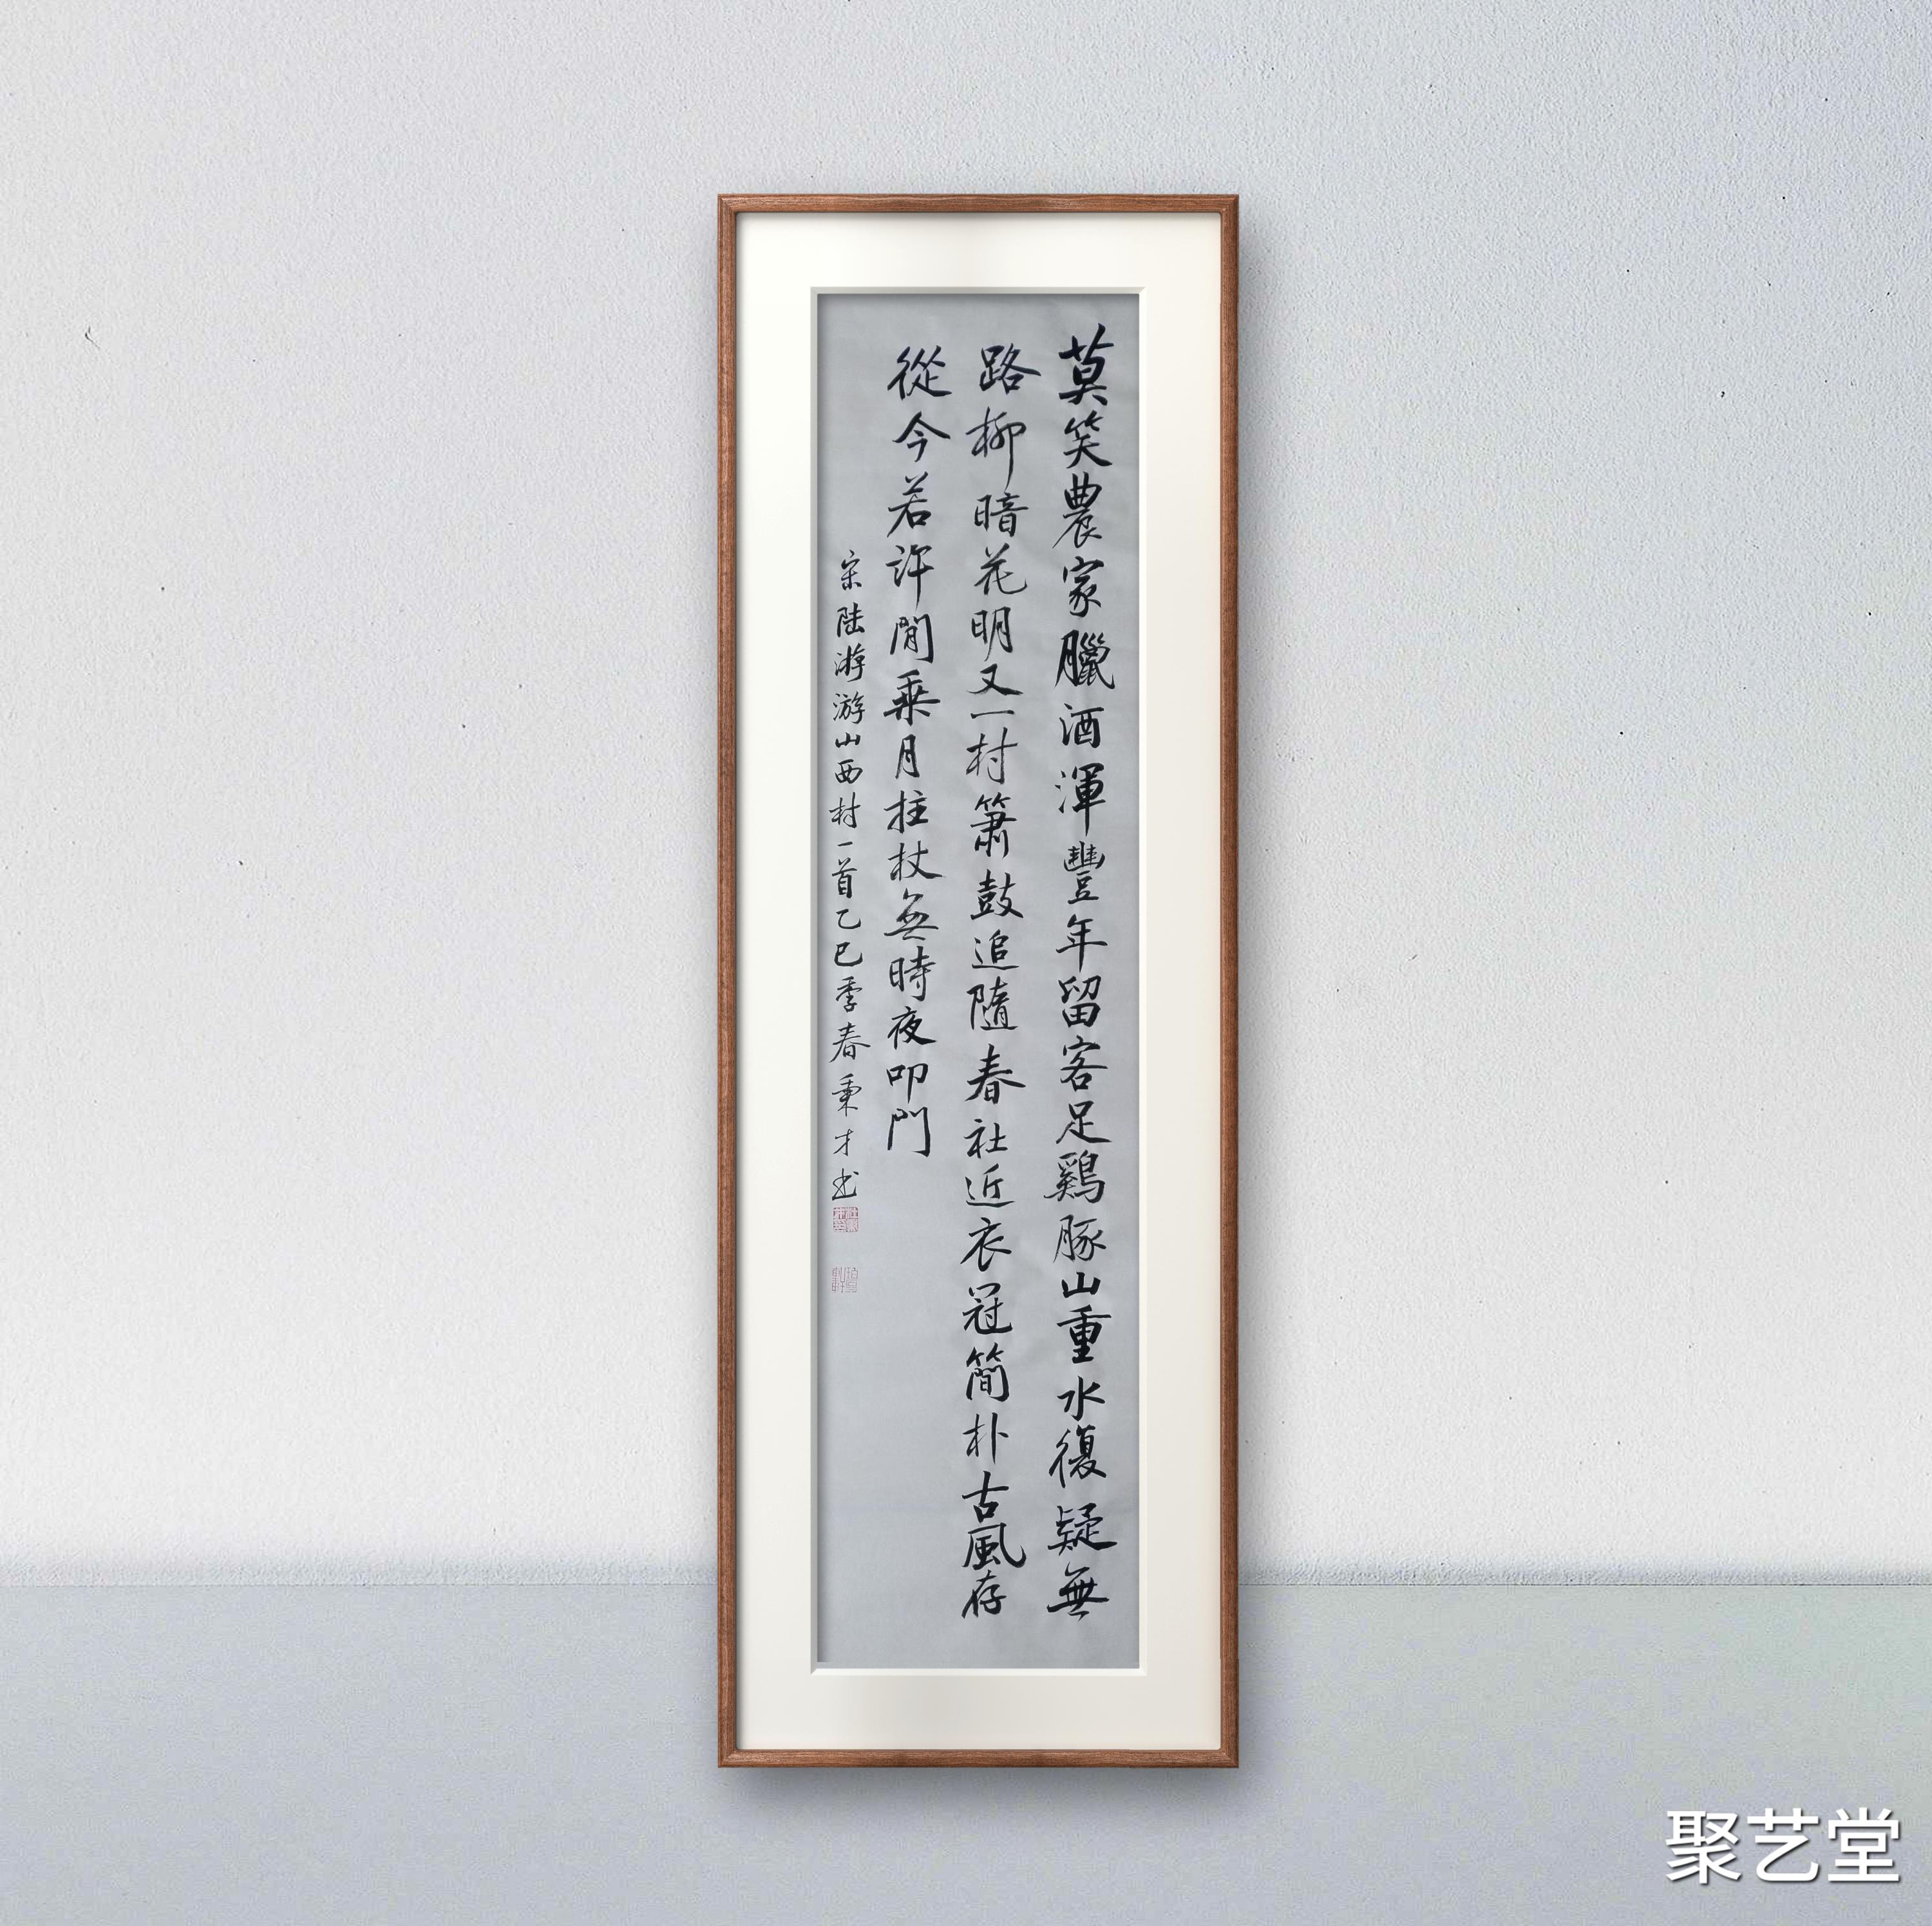 莫笑農家臘酒渾豐年留客足鷄豚山重水復疑無
路柳暗花明又一村簫鼓追隨春社近衣冠簡朴古風存
從今若許閒乘月拄杖無時夜叩門
宋陆游游山西村一首乙巳季春秉才书
聚艺堂